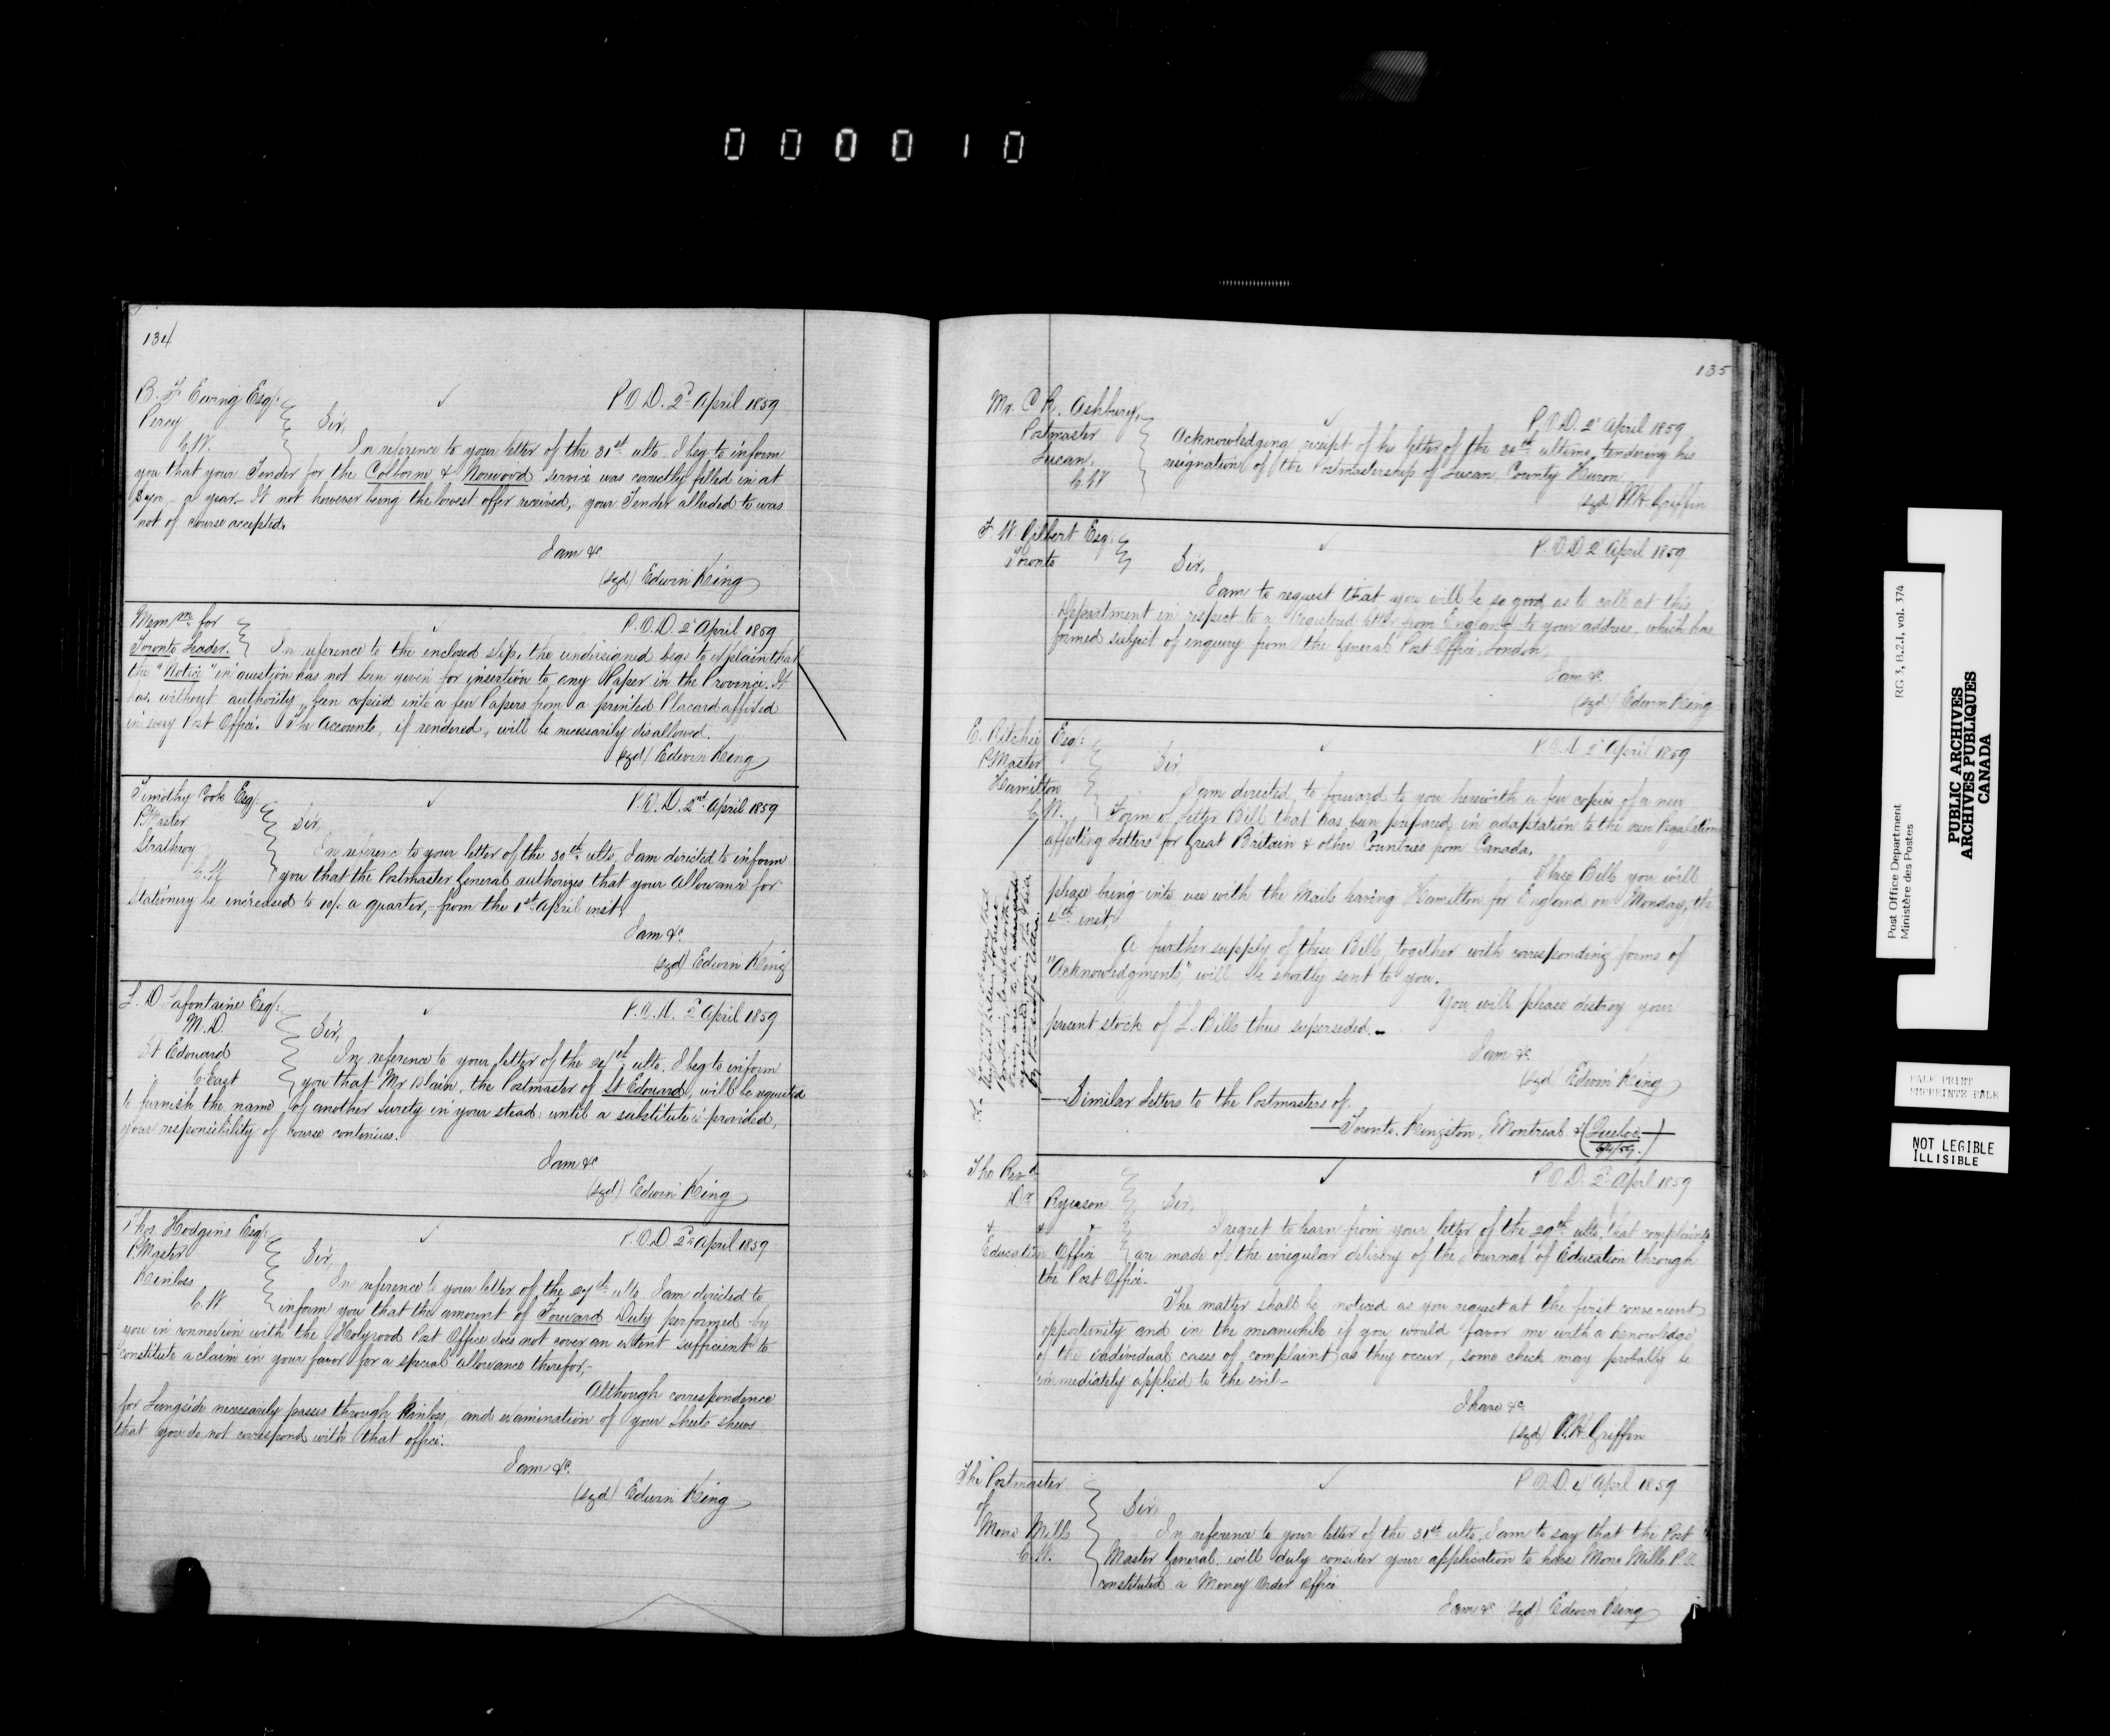 000010
134
B. F. Ewing Esq:
Percy
C.W.
P.O.D. 2d April 1859
Sir,
In reference to your letter of the 31st ulto. I beg to inform
you that your Tender for the Colborne & Norwood service was correctly filled in at
a year. It not however being the lowest offer received, your Tender alluded to was
not of course accepted.
I am &c
(sgd) Edwin King
Memm for
Toronto Leader.
P.O.D. 2d April 1859
In reference to the enclosed slip, the undersigned begs to explain that
the "Notice" in question has not been given for insertion to any Paper in the Province. It
has, without authority, been copied into a few Papers from a printed Placard affixed
in every Post Office. The Accounts, if rendered, will be necessarily disallowed.
(sgd) Edwin King
Timothy Cook Esq:
P.Master
Strathroy
C.W.
P.O.D. 2nd April 1859
Sir,
In reference to your letter of the 30th ulto, I am directed to inform
you that the Postmaster General authorizes that your allowance for
Stationery be increased to 10/. a quarter, from the 1st April inst.
I am &c.
(sgd) Edwin King
L. D. Lafontaine Esq:
M.D.
St Edouard
C. East
P.O.D. 2d April 1859
Sir,
In reference to your letter of the ulto. I beg to inform
you that Mr Blain, the Postmaster of St Edouard, will be required
to furnish the name of another surety in your stead: until a substitute is provided,
your responsibility of course continues.
I am &c
(sgd) Edwin King
Thos Hodgins Esq:
P.Master
Kinloss
C.W.
P.O.D 2d April 1859
Sir,
In reference to your letter of the 27th ulto I am directed to
inform you that the amount of Forward Duty performed by
you in connection with the Holyrood Post Office does not cover an extent sufficient to
constitute a claim in your favor for a special allowance therefor,
Although correspondence
for Langside necessarily passes through Kinloss, and examination of your sheets shews
that you do not correspond with that office.
I am &c.
(sgd) Edwin King
135
Mr. C R. Ashbury,
Postmaster
Lucan.
C.W
P.O.D. 2d April 1859
Acknowledging receipt of his letter of the 30th ultimo, tendering his
resignation of the Postmastership of Lucan, County Huron,
(sgd) W.H. Griffin
F. W. Gilbert Esq:
Toronto
P.O.D 2d April 1859
Sir,
I am to request that you will be so good as to call at this
Department in respect to a Registered letter from England to your address, which has
formed subject of enquiry from the General Post Office, London.
I am &c.
(sgd) Edwin King
E. Ritchie Esq:
P.Master
Hamilton
C.W.
P.O.D 2d April 1859
Sir
I am directed, to forward to you herewith a few copies of a new
Form of Letter Bill that has been prepared, in adaptation to the new Regulations
affecting Letters for Great Britain & other Countries from Canada.
These Bills you will
please bring into use with the Mails leaving Hamilton for England on Monday, the
4th inst.
A further supply of these Bills, together with corresponding forms of
"Acknowledgments", will be shortly sent to you.
You will please destroy your
present stock of L. Bills thus superseded.
I am &c.
(sgd) Edwin King
Similar Letters to the Postmasters of.
Toronto, Kingston, Montreal & (Quebec.)
The Revd
Dr Ryerson
Education Office
P.O.D. 2d April 1859
Sir,
I regret to learn from your letter of the 29th ulto, that complaints
are made of the irregular delivery of the Journal of Education through
the Post Office.
The matter shall be noticed as you request at the first convenient
opportunity and in the meanwhile if you would favor me with a knowledge
of the individual cases of complaint as they occur, some check may probably be
immediately applied to the evil
I have &c
(sgd) W.H. Griffin
The Postmaster
of
Mono Mills
C.W.
P.O.D. 4 April 1859
Sir,
In reference to your letter of the 31st ulto. I am to say that the Post
Master General, will duly consider your application to have Mono Mills P.O
constituted a Money Order Office
I am &c (sgd) Edwin King
Post Office Department
Ministère des Postes
RG 3, B.2.1, vol. 374
PUBLIC ARCHIVES
ARCHIVES PUBLIQUES
CANADA
PALE PRINT
EMPREINTE PALE
NOT LEGIBLE
ILLISIBLE